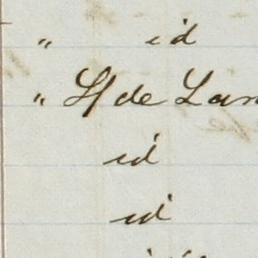 " id
" H de Lan
id
id